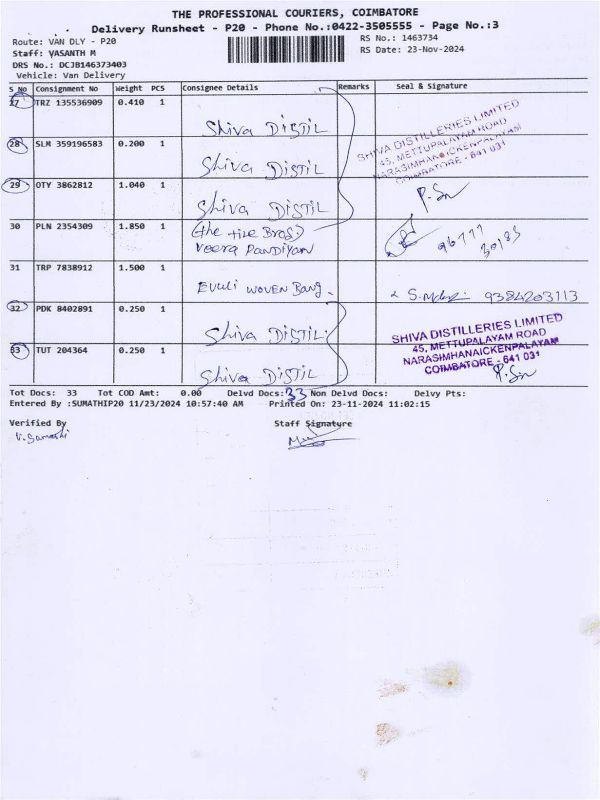 THE PROFESSIONAL COURIERS, COIMBATORE
Delivery Runsheet - P20 - Phone No.:0422-3505555 - Page No.:3
Route: VAN DLY - P20
RS No.: 1463734
Staff: VASANTH M
RS Date: 23-Nov-2024
DRS No.: DCJB146373403
Vehicle: Van Delivery
S No Consignment No Weight PCS Consignee Details Remarks Seal & Signature
27 TRZ 135536909 0.410 1
Shiva DISTIL
28 SLM 359196583 0.200 1
Shiva DISTIL
SHIVA DISTILLERIES LIMITED
45, METTUPALAYAM ROAD
NARASIMHANAICKENPALAYAM
COIMBATORE - 641 031
29 OTY 3862812 1.040 1
Shiva DISTIL
30 PLN 2354309 1.850 1
(the tile Bros)
Veera PANDIYAN
96777
30185
31 TRP 7838912 1.500 1
WOVEN Bang.
9384203113
32 PDK 8402891 0.250 1
Shiva DISTIL
33 TUT 204364 0.250 1
Shiva DISTIL
SHIVA DISTILLERIES LIMITED
45, METTUPALAYAM ROAD
NARASIMHANAICKENPALAYAM
COIMBATORE - 641 031
Tot Docs: 33 Tot COD Amt: 0.00 Delvd Docs: 33 Non Delvd Docs: Delvy Pts:
Entered By :SUMATHIP20 11/23/2024 10:57:40 AM Printed On: 23-11-2024 11:02:15
Verified By Staff Signature